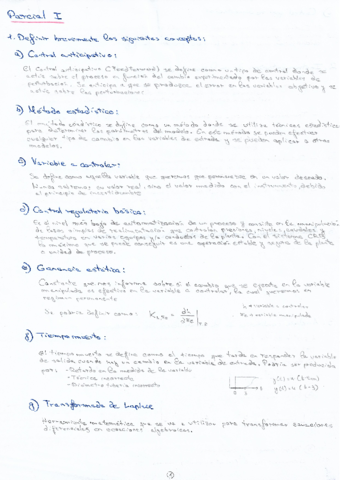 Parcial I
1. Definir brevemente los siguientes conceptos:
a) Control anticipativo:
El Control anticipativo (Feedforward) se define como un tipo de control donde se
actúa sobre el proceso en función del cambio experimentado por las variables de
perturbación. Se anticipa a que se produzca el error en las variables objetivo y se
actúa sobre las perturbaciones.
b) Método estadístico:
El método estadístico se define como un método donde se utiliza técnicas estadísticas
para determinar los parámetros del modelo. En este método se pueden efectuar
cualquier tipo de cambio en las variables de entrada y se pueden aplicar a otros
modelos.
c) Variable a controlar:
Se define como aquella variable que queremos que permanezca en un valor deseado.
Nunca valoramos su valor real, sino el valor medido con el instrumento debido
al principio de incertidumbre.
d) Control regulatorio básico:
Es el nivel más bajo de automatización de un proceso y consiste en la manipulación
de lazos simples de realimentación que controlan presiones, niveles, caudales y
temperatura en varios equipos y/o conductos de la planta. Con el sistema CRB
lo máximo que se puede conseguir es una operación estable y segura de la planta
o unidad de proceso.
e) Ganancia estática:
Constante que nos informa sobre si el cambio que se ejecuta en la variable
manipulada es efectivo en la variable a controlar, la cual queremos en
régimen permanente
Se podría definir como:
f) Tiempo muerto:
El tiempo muerto se define como el tiempo que tarda en responder la variable
de salida cuando hay un cambio en la variable de entrada. Podría ser producido
por: - Retardo en la medida de la variable
g) Transformada de Laplace
Herramienta matemática que se va a utilizar para transformar ecuaciones
diferenciales en ecuaciones algebraicas.